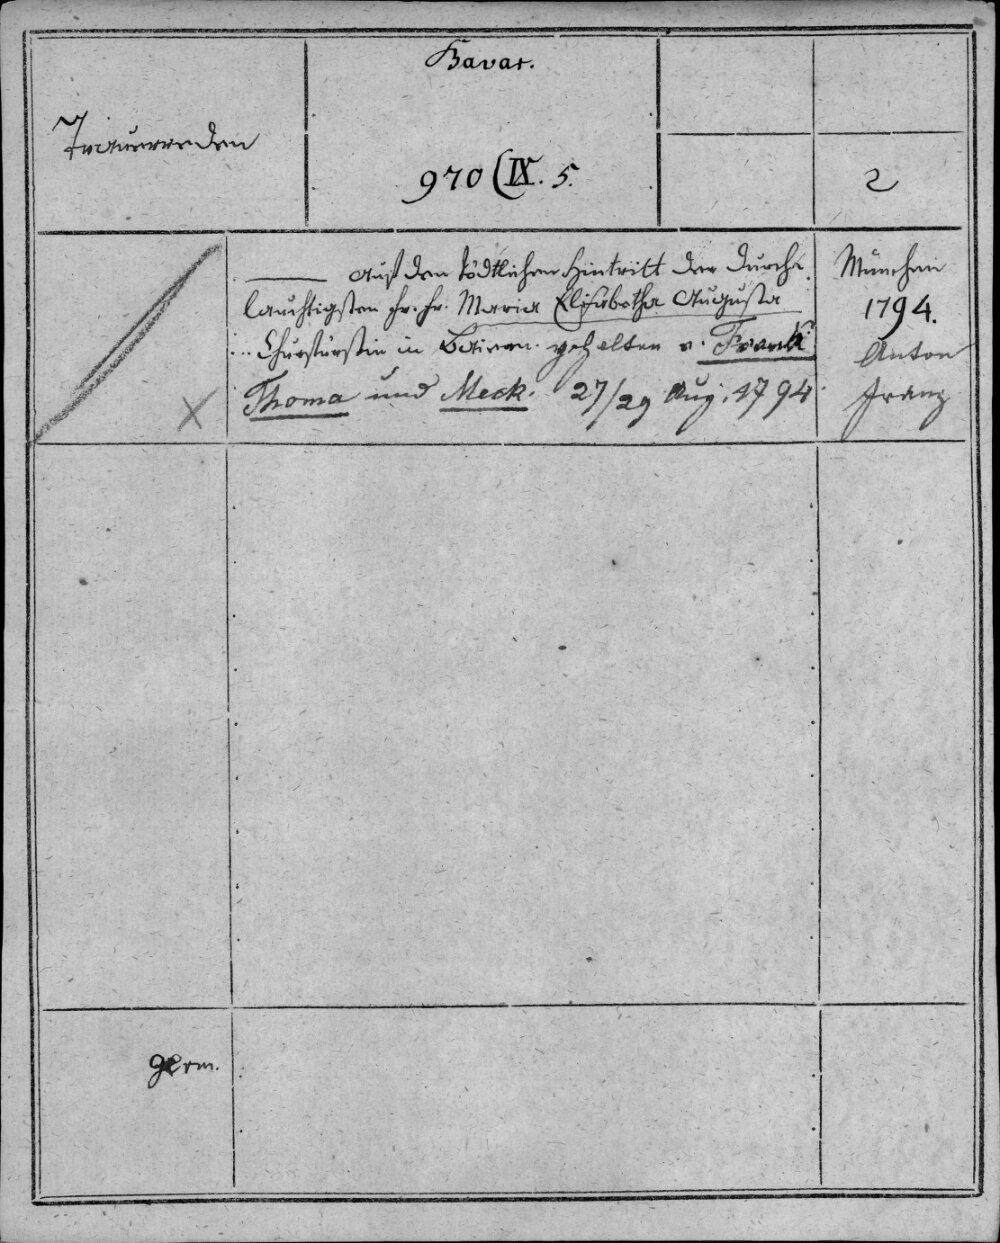 Bavar.
Trauerreden
970 (IX. 5.
2
—— auf den tödtlichen Hintritt der Durch-
lauchtigsten Fr. Fr. Maria Elisabetha Augusta
... Churfürstin in Baiern. gehalten v. Frank
Thoma und Meck. 27/29 Aug. 1794.
München
1794.
Anton
Franz
X
germ.